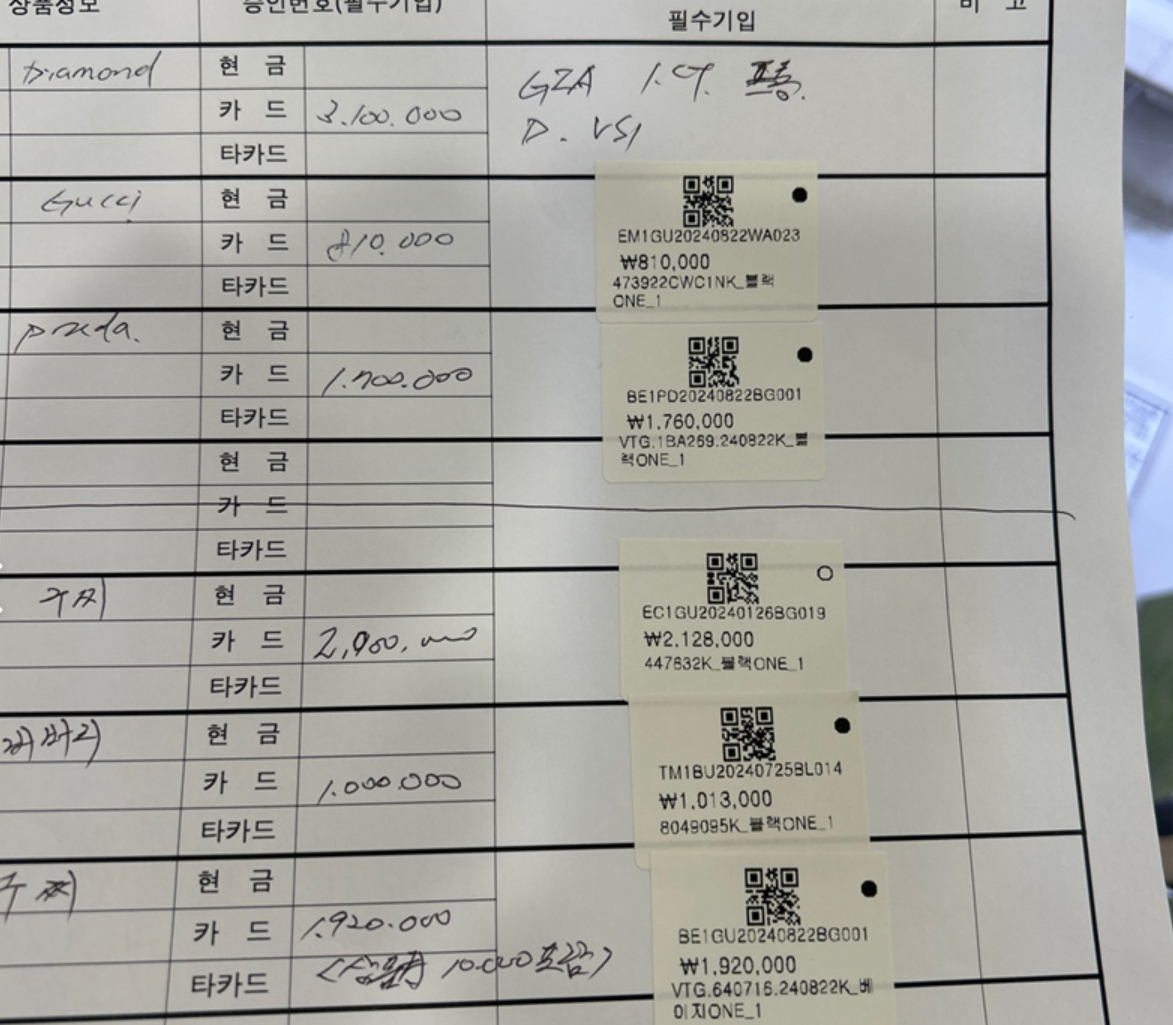 상품정보
승인번호(필수기입)
필수기입
비 고
Diamond
현 금
카 드 3.100.000
타카드
GIA 1.CT.
D. VS1
Gucci
현 금
카 드 810.000
타카드
EM1GU20240822WA023
₩810,000
473922CWC1NK_블랙
ONE_1
prada.
현 금
카 드 1.700.000
타카드
BE1PD20240822BG001
₩1,760,000
VTG.1BA269.240822K_블
랙ONE_1
현 금
카 드
타카드
구찌
현 금
카 드 2,900,000
타카드
EC1GU20240126BG019
₩2,128,000
447632K_블랙ONE_1
버버리
현 금
카 드 1.000.000
타카드
TM1BU20240725BL014
₩1,013,000
8049095K_블랙ONE_1
구찌
현 금
카 드 1.920.000
타카드 10.000포함>
BE1GU20240822BG001
₩1,920,000
VTG.640716.240822K_베
이지ONE_1